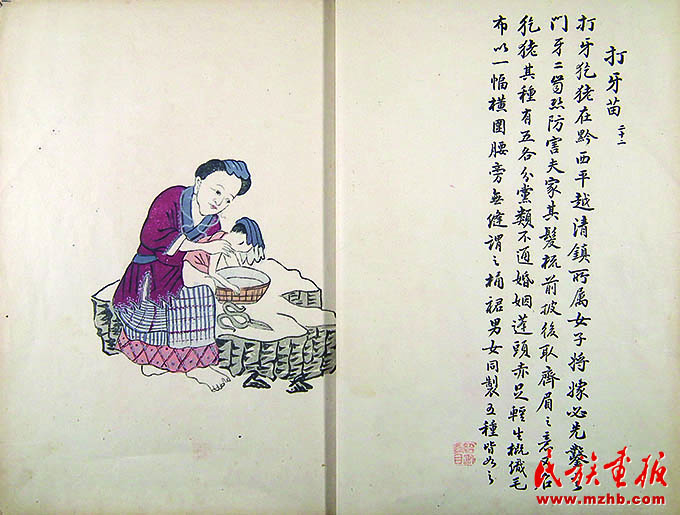 打牙苗 二十二
打牙犵狫在黔西平越清鎮所属女子将嫁必先鑿
門牙二筒恐防害夫家其髮梳前披後取齊眉之意又名
犵狫其種有五各分黨類不通婚姻蓬頭赤足輕生織毛
布以一幅橫圍腰旁無縫謂之桶裙男女同製五種皆如之
民族画报
www.mzhb.com